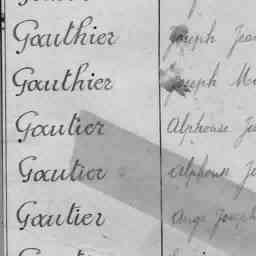 Gauthier Joseph Jean
Gauthier Joseph
Gautier Alphonse
Gautier Alphonse
Gautier Ange Joseph